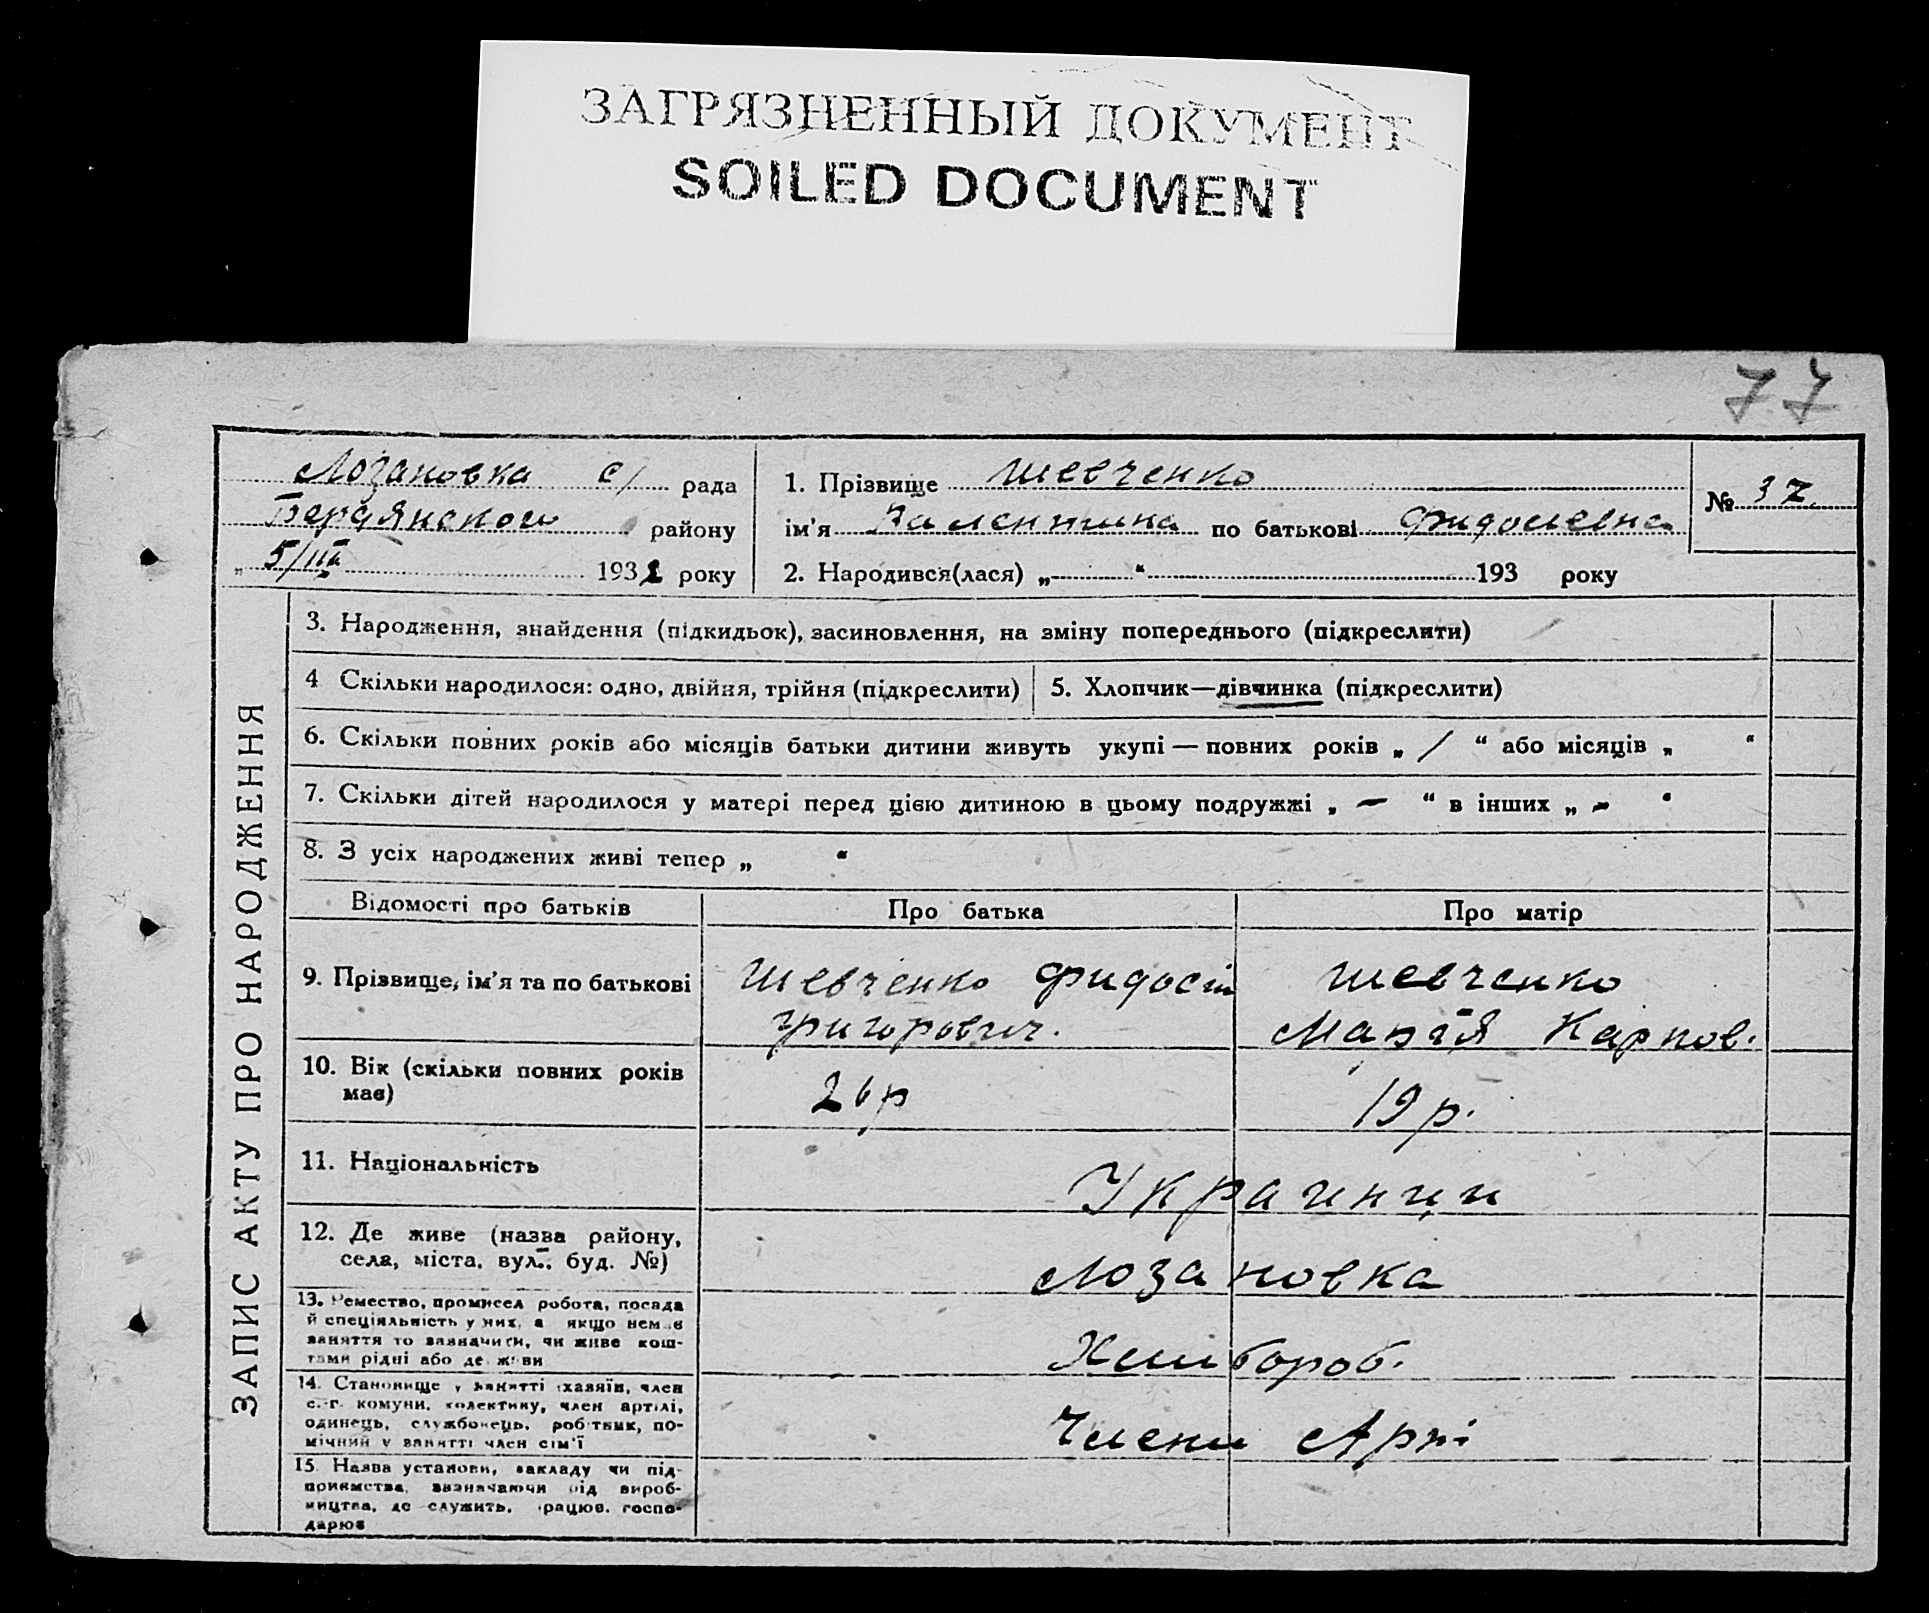 ЗАГРЯЗНЕННЫЙ ДОКУМЕНТ
SOILED DOCUMENT
77
Лозановка с/ рада
Бердянского району
„ 5/III 1932 року
1. Прізвище Шевченко
ім'я Валентина по батькові Фидосіевна
2. Народився(лася) „ “ 193 року
№ 37.
ЗАПИС АКТУ ПРО НАРОДЖЕННЯ
3. Народження, знайдення (підкидьок), засиновлення, на зміну попереднього (підкреслити)
4 Скільки народилося: одно, двійня, трійня (підкреслити)
5. Хлопчик—дівчинка (підкреслити)
6. Скільки повних років або місяців батьки дитини живуть укупі — повних років „ / “ або місяців „ “
7. Скільки дітей народилося у матері перед цією дитиною в цьому подружжі „ — “ в інших „ - “
8. З усіх народжених живі тепер „ “
Відомості про батьків Про батька Про матір
9. Прізвище, ім'я та по батькові
Шевченко Фидосій
Григорович.
Шевченко
Марія Карпов.
10. Вік (скільки повних років
має)
26р
19р.
11. Національність
Украинци
12. Де живе (назва району,
села, міста, вул., буд. №)
Лозановка
13. Ремество, промисел робота, посада
й спеціяльність у них, а якщо немає
заняття то зазначити, чи живе кош-
тами рідні або держави
Хлибороб.
14. Становище у занятті хазяїн, член
с.-г. комуни, колективу, член артілі,
одинець, службовець, робітник, по-
мічний у занятті член сім'ї
Члени Арті
15. Назва установи, закладу чи під-
приємства, зазначаючи рід вироб-
ництва, де служить, працює, госпо-
дарює